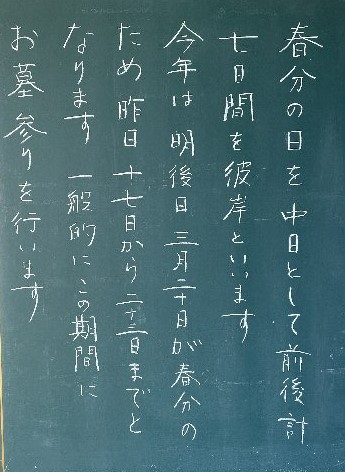 春分の日を中日として前後計
七日間を彼岸といいます
今年は明後日三月二十日が春分の
ため昨日十七日から二十三日までと
なります一般的にこの期間に
お墓参りを行います